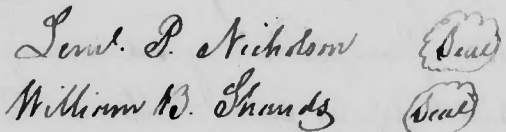 Leml. P. Nicholson (Seal)
William B. Shands (Seal)